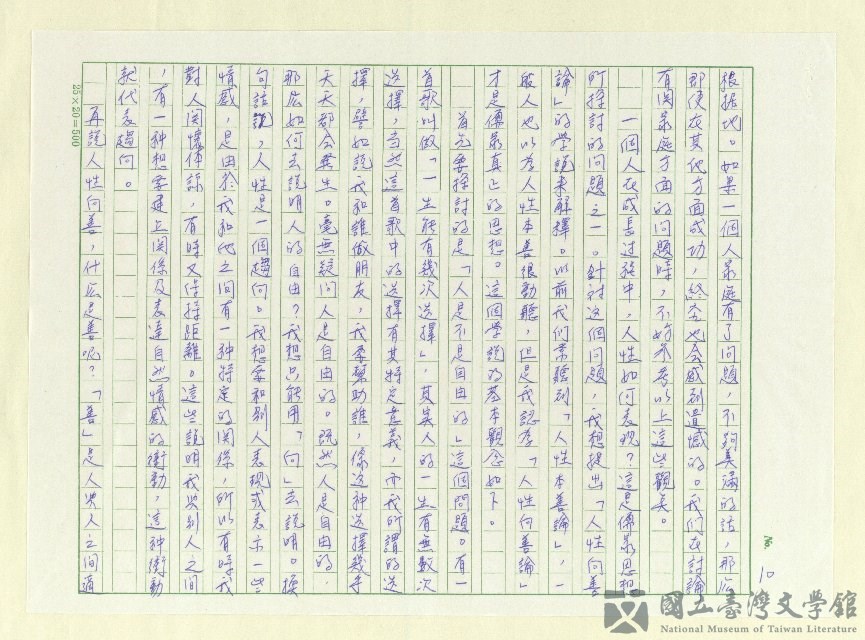 根据地。如果一個人家庭有了問題,不夠美滿的話,那麼
即使在其他方面成功,終究也會感到遺憾的。我們在討論
有関家庭方面的問題時,不妨参考以上這些觀美。
一個人在成長过程中,人性如何表現?這是儒家思想
所探討的问題之一。針对這個问題,我想提出「人性向善
論」的學說來解擇。以前我們常聽到「人性本善論」,一
般人也以為人性本善很動聽,但是我認為「人性向善論」
才是儒家真正的思想。這個學說的基本觀念如下。
首先要探討的是「人是不是自由的」這個問題。有一
首歌叫做「一生能有幾次选擇」,其实人的一生有無數次
选擇,当然這首歌中的选擇有其特定意義,而我所謂的选
擇,譬如說:我和誰做朋友,我要幫助誰,像这种选擇幾乎
天天都会發生。毫無疑问人是自由的。既然人是自由的,
那麼如何去說明人的自由?我想只能用「向」去說明。換
句話說,人性是一個趨向。我想要和别人表現或表示一些
情感,是由於我和他之间有一种特定的関係,所以有時我
對人関懷体諒,有時又保持距離。這些說明我与别人之间
,有一种想要建立関係及表達自然情感的衝動,這种衝動
就代表趨向。
再說人性向善,什麼是善呢?「善」是人与人之间適
25×20=500
No. 10
國立臺灣文學館
National Museum of Taiwan Literature